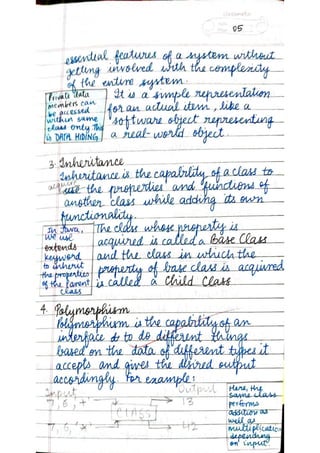 05
essential features of a system without
getting involved with the complexity
of the entire system.
Private data
members can
be accessed
within same
class only. This
is DATA HIDING
It is a simple representation
for an actual item, like a
software object representing
a real-world object.
3. Inheritance
Inheritance is the capability of a class to
acquire
use the properties and functions of
another class while adding its own
functionality.
In Java,
we use
extends
keyword
to inherit
the properties
of the parent
class
The class whose property is
acquired is called a Base Class
and the class in which the
property of base class is acquired
is called a Child Class
4. Polymorphism
Polymorphism is the capability of an
interface to do different things
based on the data of different types it
accepts and gives the desired output
accordingly. For example:
Input
Output
7, 6, '+'
13
CLASS
7, 6, '×'
42
Here, the
same class
performs
addition as
well as
multiplication
depending
on input